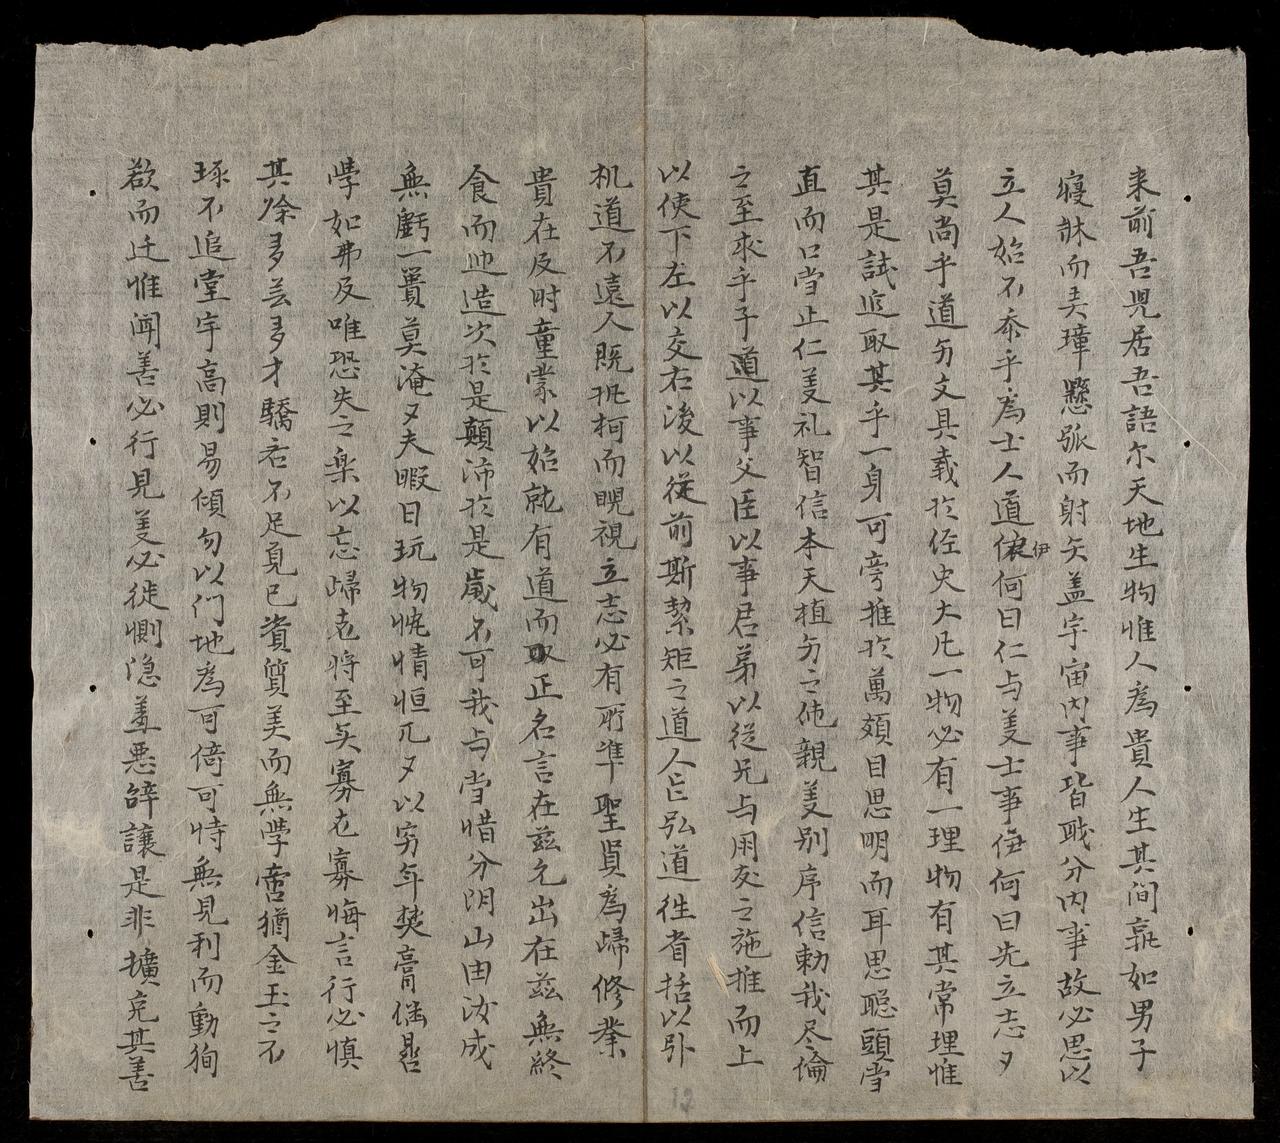 来前吾兒居吾語尔天地生物惟人為貴人生其间孰如男子
寢牀而弄璋懸弧而射矢盖宇宙内事皆戝分内事故必思以
立人始不忝乎為士人道伊何曰仁与義士事伊何曰先立志夕
莫尚乎道旁文具載扵経史大凡一物必有一理物有其常理惟
其是試近取其乎一身可旁推扵萬類目思明而耳思聦頭当
直而口当止仁義礼智信本天植旁之彝親義别序信勅我尽倫
之至求乎子道以事父臣以事君弟以從兄与朋友之施推而上
以使下左以交右後以従前斯絜矩之道人亡弘道徃省括以引
机道不遠人既执柯而睨視立志必有所準聖贤為歸修業
貴在及时童蒙以始就有道而取正名言在兹允出在兹無終
食而迚造次扵是顛沛扵是歲不可我与当惜分阴山由汝成
無虧一簣莫淹夕夫暇日玩物恍情恒兀夕以穷年焚膏继晷
學如弗及唯恐失之楽以忘歸老将至矣寡尤寡悔言行必慎
其馀多芸多才驕吝不足覌已資質美而無學啻猶金玉之不
琢不追堂宇高則易傾勿以们地為可倚可恃無見利而動徇
欲而迁惟闻善必行見義必徙惻隐羞悪辝讓是非擴充其善